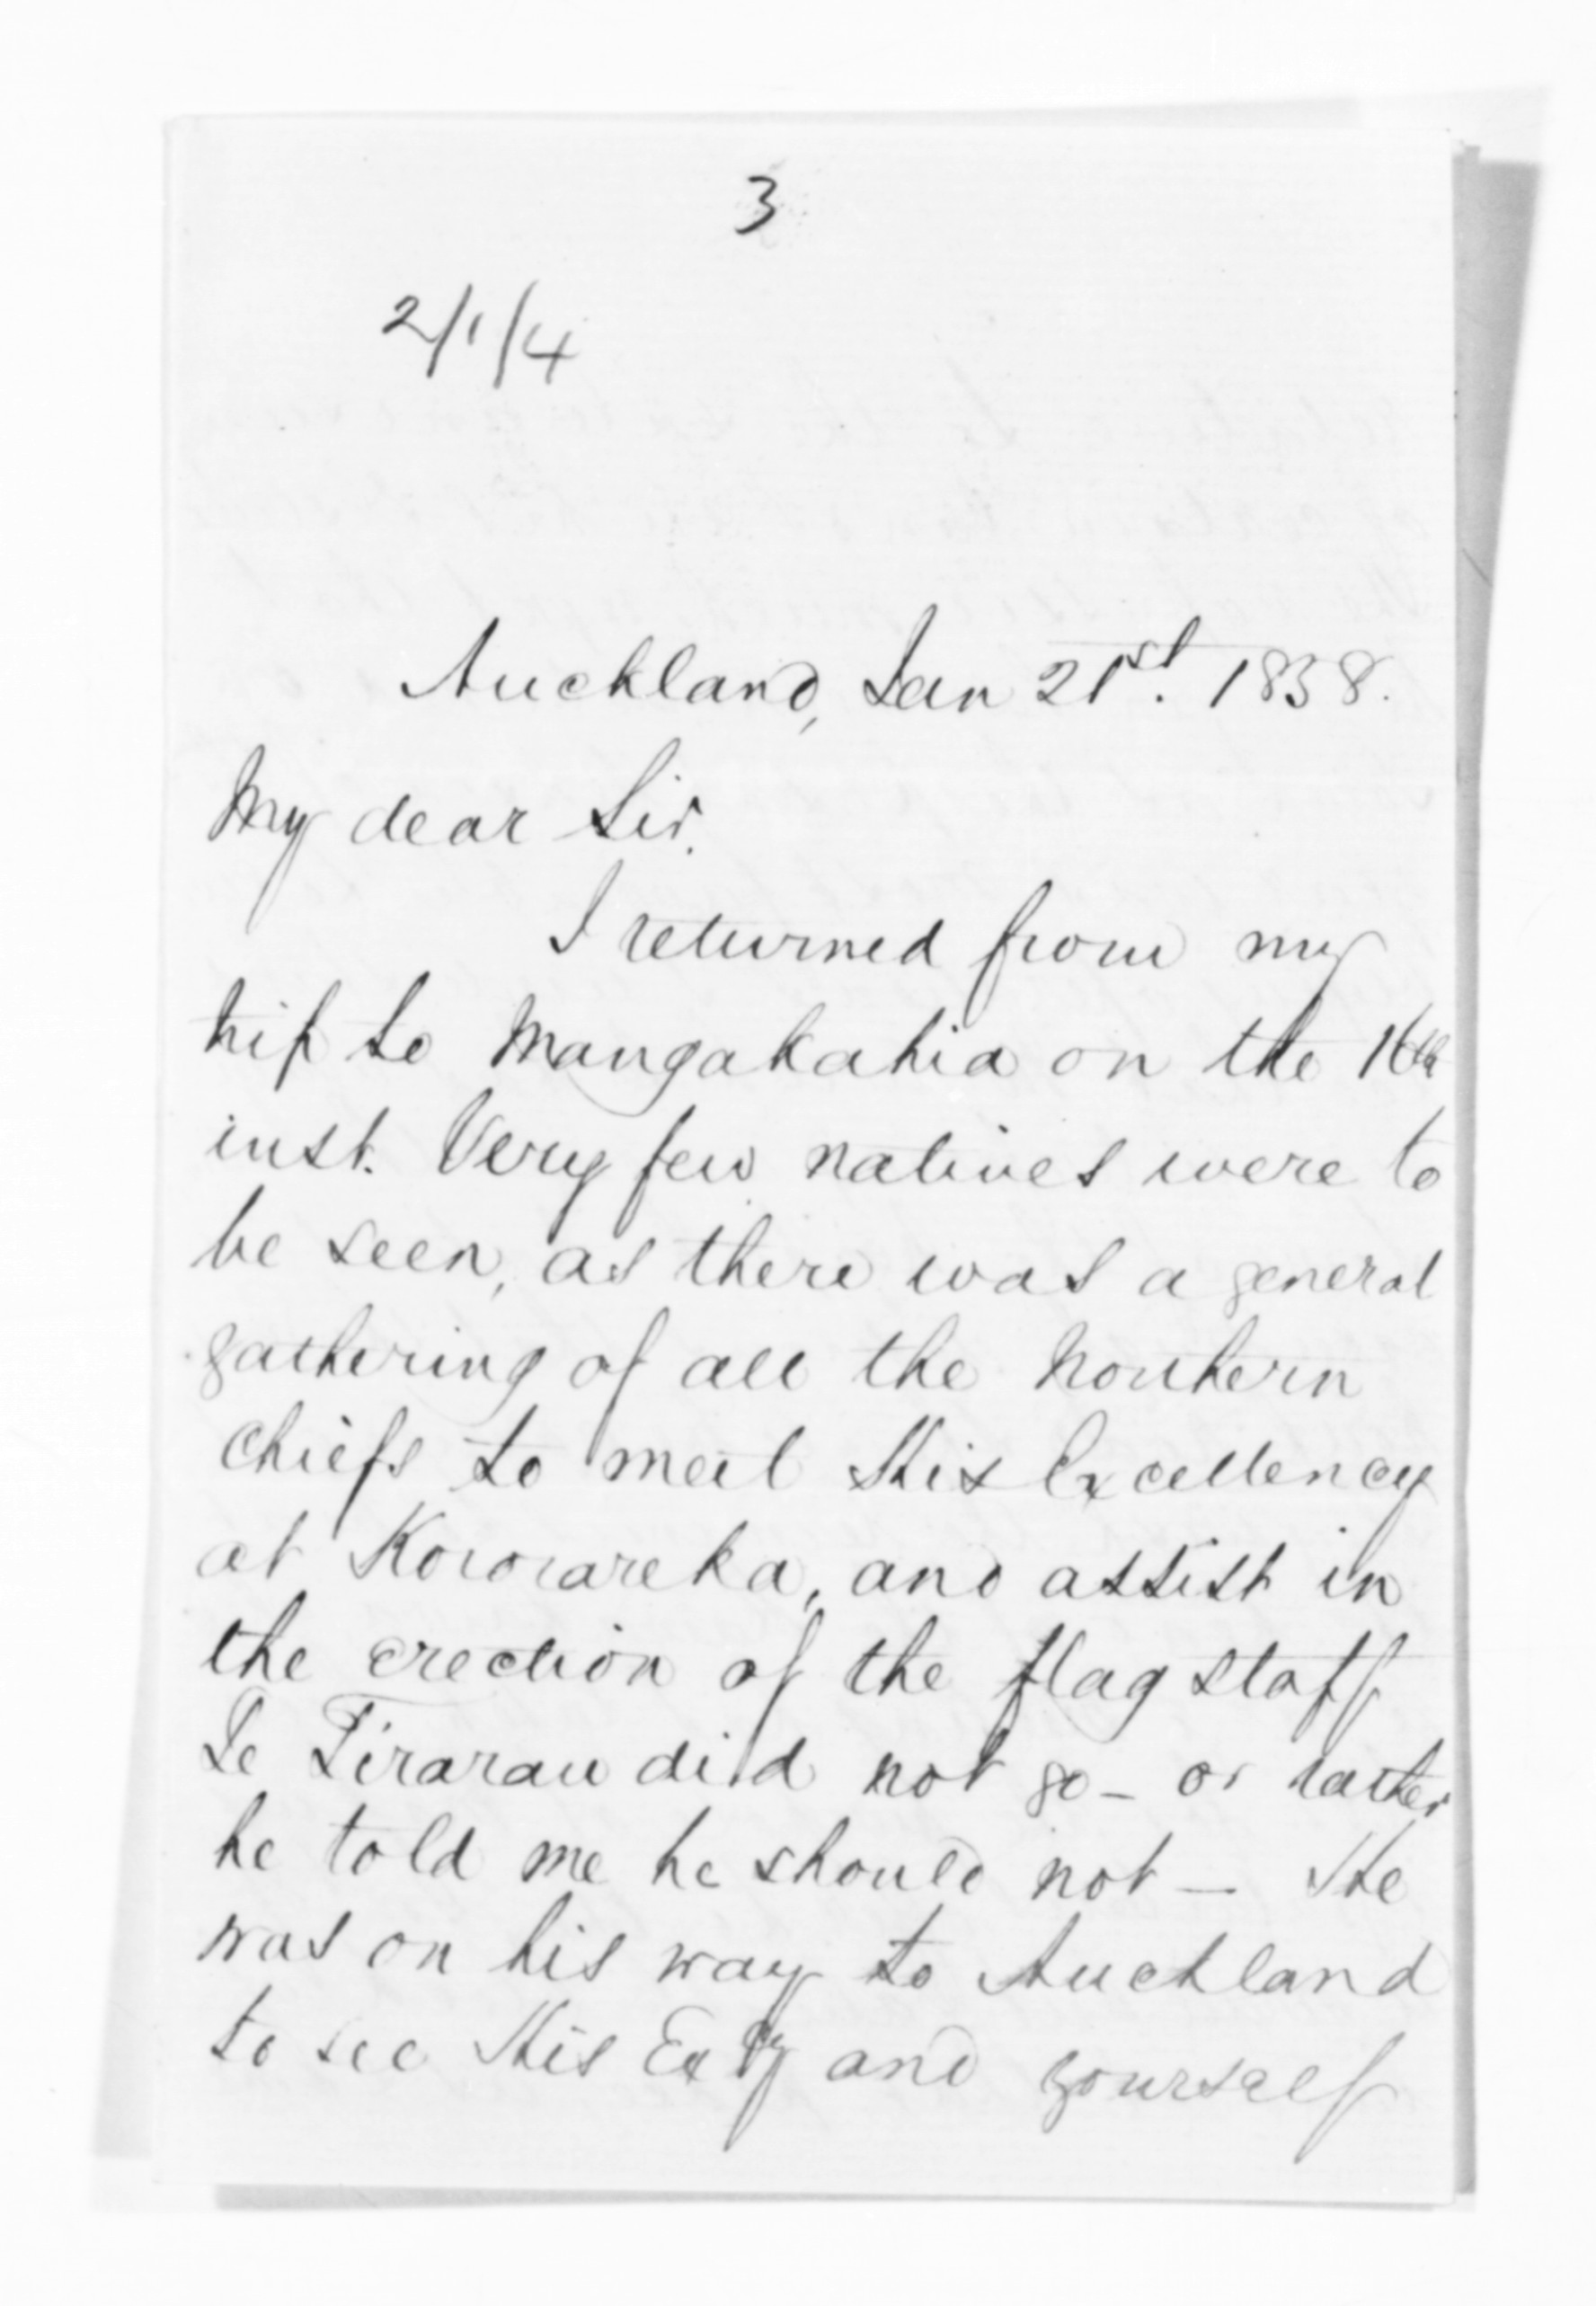 3
2/1/4
Auckland, Jan 21st. 1838.
My dear Sir.
I returned from my
trip to Mangakahia on the 16th
inst. Very few natives were to
be seen, as there was a general
gathering of all the Northern
Chiefs to meet His Excellency
at Kororareka, and assist in
the erection of the flag staff
Te Tirarau did not go - or rather
he told me he should not - He
was on his way to Auckland
to see His Excy and yourself